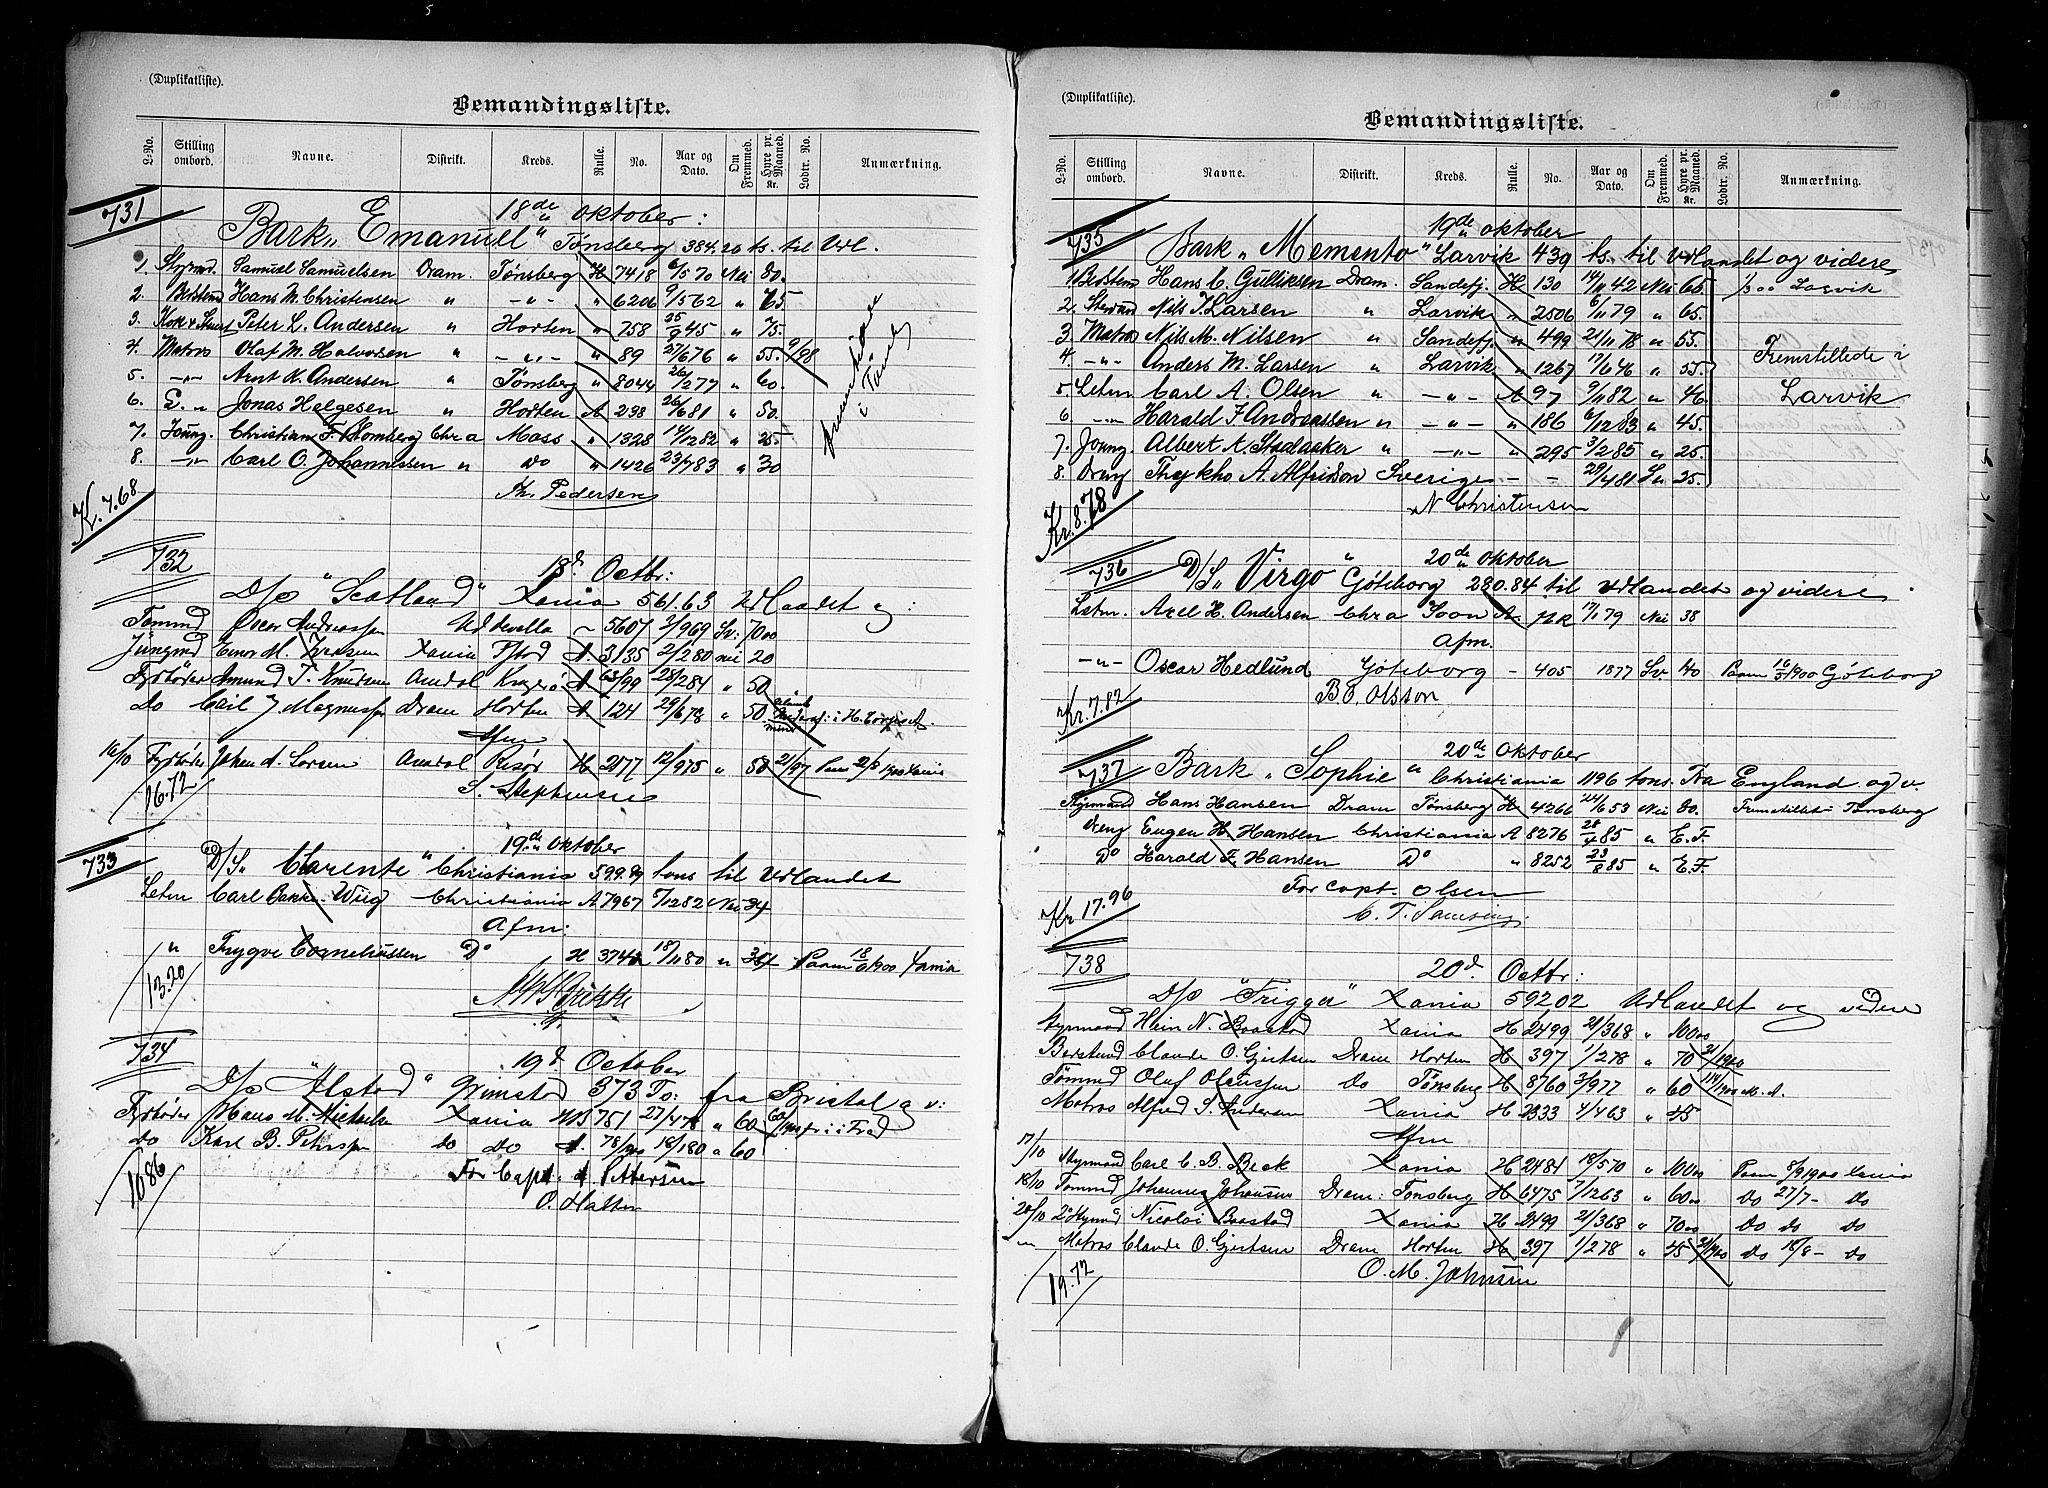 5
(Duplikatliste).
Bemandingsliste.
L-No. Stilling ombord. Navne. Distrikt. Kreds. Rulle. No. Aar og Dato. Om Fremmed. Hyre pr. Maaned. Kr. Lodtr. No. Anmærkning.
731 18de oktober:
Bark "Emanuel" Tønsberg 384.20 ts. til Udl.
1. Styrmd. Samuel Samuelsen Dram. Tønsberg H 7418 6/5 70 Nei 80.
2. Bestmd Hans M. Christensen " -"- " 6206 9/5 62 " 65
3. Kok & Stuert Peter L. Andersen " Horten " 758 25/9 45 " 75.
4. Matros Olaf M. Halvorsen " -"- " 89 27/6 76 " 55. 9/98
5. -"- Arnt K. Andersen " Tønsberg " 8044 26/2 77 " 60.
6. L. " Jonas Helgesen " Horten A 238 26/6 81 " 50.
7. Joung. Christian F. Blomberg Chra Moss " 1328 14/12 82 " 25.
8. -"- Carl O. Johannessen " Do " 1426 23/7 83 " 30
Kr. 7.68
Th. Pedersen
732 18d. Octbr:
D/S "Scotland" Xania 561.63 Udlandet og:
Tømmd Oscar Andreassen Uddevalla - 5607 3/9 69 Sv: 70 00
Jüngmd Einar M. Iversen Xania Fjerd A 3/35 2/2 80 nei 20
Fyrbøder Amund T. Knudsen Arendal Kragerø A 63/99 28/2 84 " 50
Do Carl J. Magnussen Dram Horten A 124 29/6 78 " 50
Afm
16/10 Fyrbøder Johan A. Larsen Arendal Risør H 2177 12/9 75 " 50 21/97 Paam 2/6 1900 Xania
16.72 S. Stephensen
733 19de oktober
D/S "Charente" Christiania 599.89 tons til Udlandet
Letm Carl Bakke Wiig Christiania A 7967 6/12 82 Nei 34
Afm:
" Trygve Cornelüssen Do H 3748 18/11 80 " 34 Paam 18/6 1900 Xania
13.20
734 19d October
D/S "Alstad" Grimstad 573 To: fra Bristol o v:
Fyrbøder Hans M. Mickelsen Xania MB 751 27/4 78 " 60
do Karl B. Petersen do do A. 78/900 18/1 80 " 60
10.86 For Capt. A Pettersen
O. Halter
(Duplikatliste).
Bemandingsliste.
L-No. Stilling ombord. Navne. Distrikt. Kreds. Rulle. No. Aar og Dato. Om Fremmed. Hyre pr. Maaned. Kr. Lodtr. No. Anmærkning.
735 19de oktober
Bark "Memento" Larvik 439 ts. til Udlandet og videre
1. Bestmd Hans C. Gulliksen Dram. Sandefj. H 130 14/11 42 Nei 65 Larvik
2. Steward Nils J. Larsen " Larvik " 2506 6/11 79 " 65.
3. Matros Nils M. Nilsen Sandefj. " 499 21/11 78 " 55.
4. -"- Anders M. Larsen " Larvik " 1267 17/6 46 " 55. Fremstillede i
5. Letm Carl A. Olsen " -"- A 97 9/11 82 " 46. Larvik
6. -"- Harald F. Andreassen " -"- " 186 6/12 83 " 45.
7. Joung Albert K. Stadaaker " -"- " 295 3/2 85 " 25.
8. Dreng Thykho A. Alfridson Sverige - - 29/4 81 Sv 25.
Kr. 8.78 N Christensen
736 20de oktober
D/S "Virgo" Göteborg 280.84 til Udlandet og videre
Letm. Axel H. Andersen Chra Soon A 112 17/11 79 Nei 38
Afm.
-"- Oscar Hedlund Göteborg - 405 1877 Sv 40 Paam 16/3 1900 Göteborg
Kr. 7.82 B O. Olsson
20de oktober
737 Bark "Sophie" Christiania 1196 tons. Fra England og v.
Styrmand Hans Hansen Dram Tønsberg H 4266 24/6 53 Nei 80. Fremstillet Tønsberg
Dreng Eugen H. Hansen Christiania A 8276 28/4 85 " E.F.
Do Harald F. Hansen Do " 8252 23/8 85 " E.F.
For Capt. Olsen
Kr 17.96 C. T. Samsing.
738 20d. Octbr:
D/S "Frigga" Xania 592.02 Udlandet og videre
Styrmand Hein N. Baastad Xania H 2499 21/3 68 " 100 00
Bestmd Claude O. Gjertsen Dram Horten H 397 1/2 78 " 70 21/1900
Tømmd Oluf Olaussen Do Tønsberg H 8760 3/9 77 " 60
Matros Alfred S. Andersen Xania H 2333 4/4 63 " 45
Afm
17/10 Styrmand Carl C. B. Beck Xania H 2484 18/5 70 " 100 00 Paam 8/9 1900 Xania
18/10 Tømmd Johannes Johansen Dram: Tønsberg H 6475 7/12 63 " 60 00 do 27/7 - do
20/10 2 Styrmd Nicolai Baastad Xania H 2499 21/3 68 " 70 00 do do do
" Matros Claude O. Gjertsen Dram Horten H 397 1/2 78 " 45 21/1900 Do 18/8 - do
19.72 O. M. Johnsen